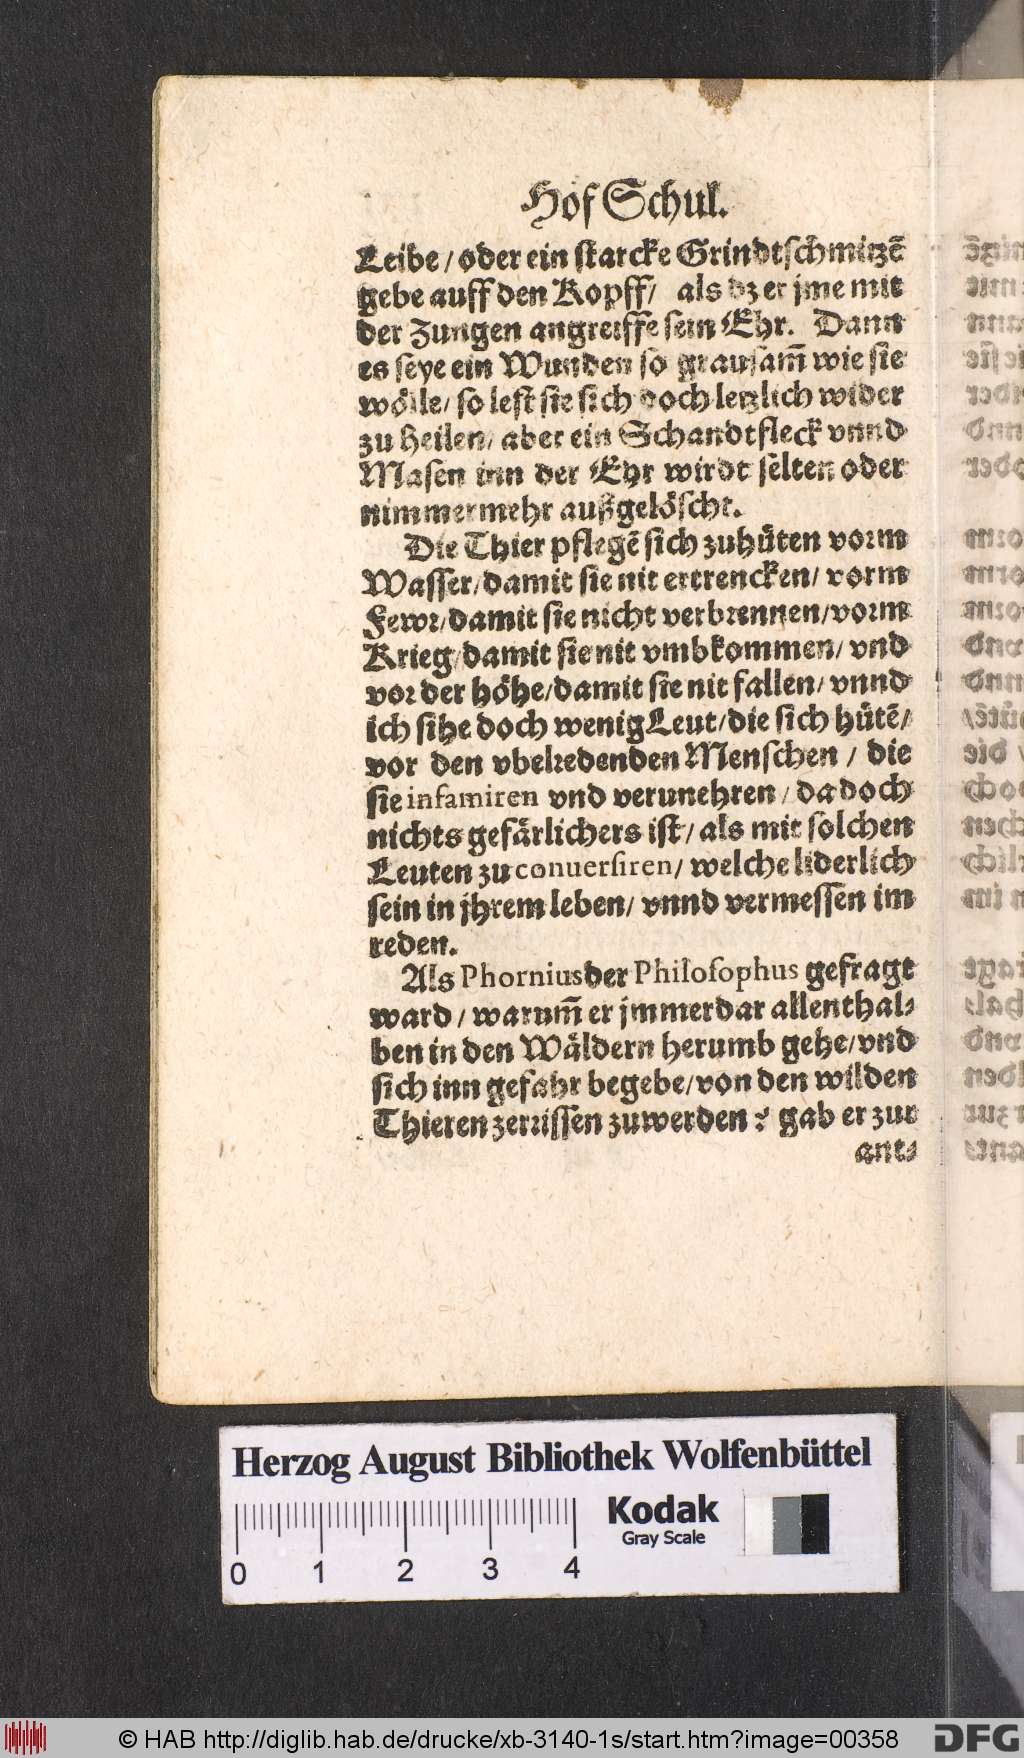 Hof Schul.
Leibe / oder ein starcke Grindtschmitzẽ
gebe auff den Kopff / als dz er jme mit
der Zungen angreiffe sein Ehr. Dann
es seye ein Wunden so grausam̃ wie sie
wölle / so lest sie sich doch letzlich wider
zu heilen / aber ein Schandtfleck vnnd
Masen inn der Ehr wirdt selten oder
nimmermehr außgelöscht.
Die Thier pflegẽ sich zuhüten vorm
Wasser / damit sie nit ertrencken / vorm
Fewr / damit sie nicht verbrennen / vorm
Krieg / damit sie nit vmbkommen / vnd
vor der höhe / damit sie nit fallen / vnnd
ich sihe doch wenig Leut / die sich hütẽ /
vor den vbelredenden Menschen / die
sie infamiren vnd verunehren / da doch
nichts gefärlichers ist / als mit solchen
Leuten zu conuersiren / welche liderlich
sein in jhrem leben / vnnd vermessen im
reden.
Als Phornius der Philosophus gefragt
ward / warum̃ er jmmerdar allenthal⸗
ben in den Wäldern herumb gehe / vnd
sich inn gefahr begebe / von den wilden
Thieren zerrissen zuwerden ? gab er zur
ant⸗
Herzog August Bibliothek Wolfenbüttel
Kodak
Gray Scale
0 1 2 3 4
© HAB http://diglib.hab.de/drucke/xb-3140-1s/start.htm?image=00358
DFG